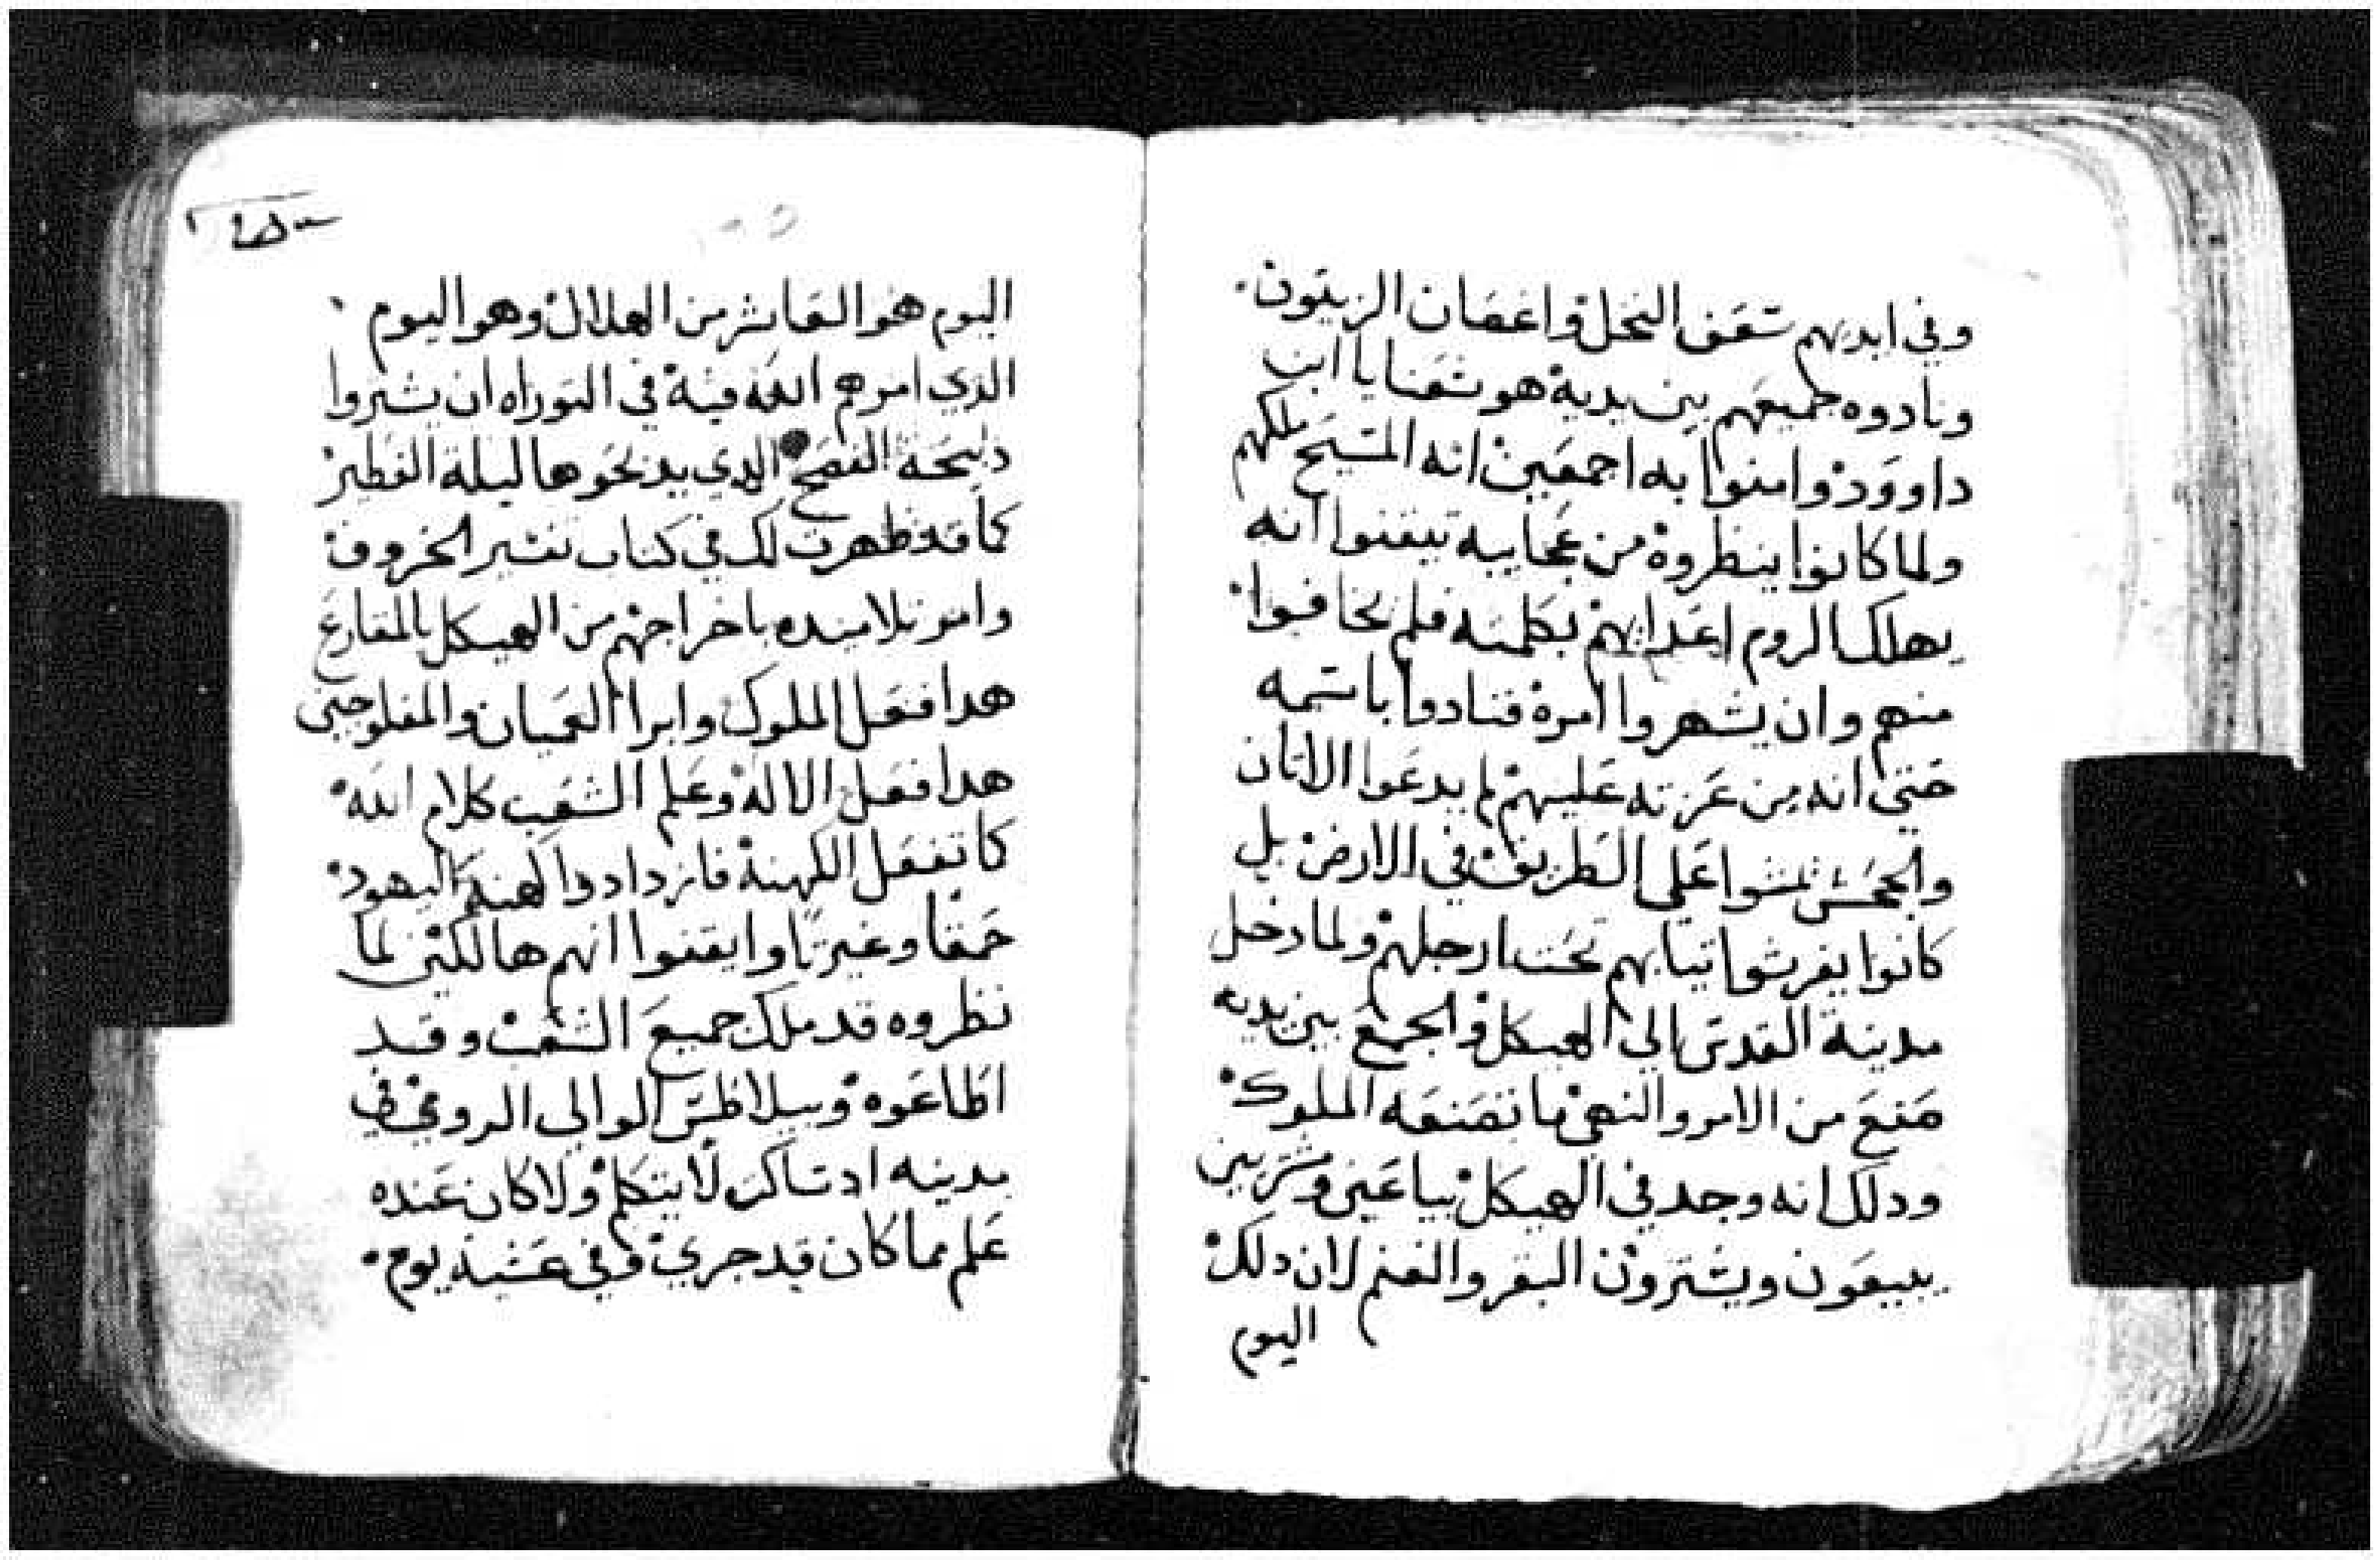 وفي ايديهم سعف النخل واغصان الزيتون
ونادوه جميعهم بين يدية هوشعنا يا ابن
داوود وامنوا به اجمعين انه المسيح ملكهم
ولما كانوا ينظروه من عجايبه تيقنوا انه
يهلك الروم اعدايهم بكلمته فلم يخافوا
منهم وان يشهروا امره فنادوا باسمه
حتي انه من عزته عليهم لم يدعوا الاتان
والجحش يمشوا علي الطريق في الارض بل
كانوا يفرشوا تيابهم تحت ارجلهم ولما دخل
مدينة القدس الي الهيكل والجمع بين يديه
صنع من الامر والنهي ما تصنعه الملوك
ودلك انه وجد في الهيكل بياعين وشريين
يبيعون ويشترون البقر والغنم لان دلك
اليوم
اليوم هو العاشر من الهلال وهو اليوم
الذي امرهم الله فيه في التوراه ان يشتروا
دبيحة الفصح الدي يدبحوها ليلة الفطير
كما قد ظهرت لك في كتاب تفسير الخروف
وامر تلاميده باخراجهم من الهيكل بالمقارع
هدا فعل الملوك وابرا العميان والمفلوجين
هدا فعل الاله وعلم الشعب كلام الله
كما تفعل الكهنة فازدادوا كهنة اليهود
حمقا وغيرتا وايقنوا انهم هالكين لما
نظروه قد ملك جميع الشعب وقد
اطاعوه وبيلاطس الوالي الرومي في
مدينه ادساكت لا يتكلم ولا كان عنده
علم مما كان قد جري وفي عشية يوم